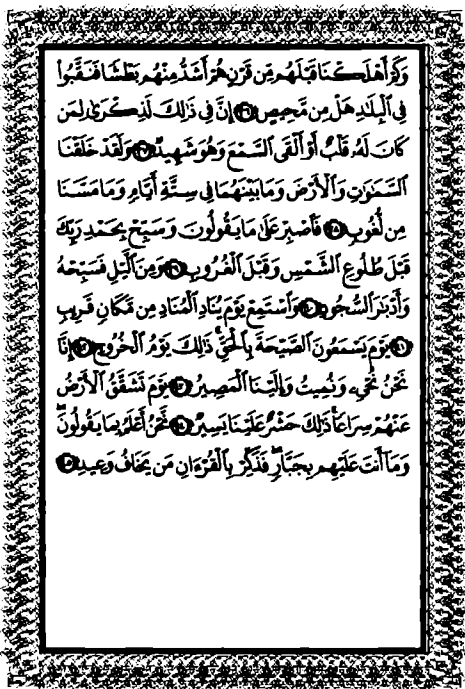 وَكَمْ أَهْلَكْنَا قَبْلَهُم مِّن قَرْنٍ هُمْ أَشَدُّ مِنْهُم بَطْشًا فَنَقَّبُوا۟
فِى ٱلْبِلَٰدِ هَلْ مِن مَّحِيصٍ ٣٦ إِنَّ فِى ذَٰلِكَ لَذِكْرَىٰ لِمَن
كَانَ لَهُۥ قَلْبٌ أَوْ أَلْقَى ٱلسَّمْعَ وَهُوَ شَهِيدٌ ٣٧ وَلَقَدْ خَلَقْنَا
ٱلسَّمَٰوَٰتِ وَٱلْأَرْضَ وَمَا بَيْنَهُمَا فِى سِتَّةِ أَيَّامٍ وَمَا مَسَّنَا
مِن لُّغُوبٍ ٣٨ فَٱصْبِرْ عَلَىٰ مَا يَقُولُونَ وَسَبِّحْ بِحَمْدِ رَبِّكَ
قَبْلَ طُلُوعِ ٱلشَّمْسِ وَقَبْلَ ٱلْغُرُوبِ ٣٩ وَمِنَ ٱلَّيْلِ فَسَبِّحْهُ
وَأَدْبَٰرَ ٱلسُّجُودِ ٤٠ وَٱسْتَمِعْ يَوْمَ يُنَادِ ٱلْمُنَادِ مِن مَّكَانٍ قَرِيبٍ
٤١ يَوْمَ يَسْمَعُونَ ٱلصَّيْحَةَ بِٱلْحَقِّ ذَٰلِكَ يَوْمُ ٱلْخُرُوجِ ٤٢ إِنَّا
نَحْنُ نُحْىِۦ وَنُمِيتُ وَإِلَيْنَا ٱلْمَصِيرُ ٤٣ يَوْمَ تَشَقَّقُ ٱلْأَرْضُ
عَنْهُمْ سِرَاعًا ذَٰلِكَ حَشْرٌ عَلَيْنَا يَسِيرٌ ٤٤ نَّحْنُ أَعْلَمُ بِمَا يَقُولُونَ
وَمَآ أَنتَ عَلَيْهِم بِجَبَّارٍ فَذَكِّرْ بِٱلْقُرْءَانِ مَن يَخَافُ وَعِيدِ ٤٥